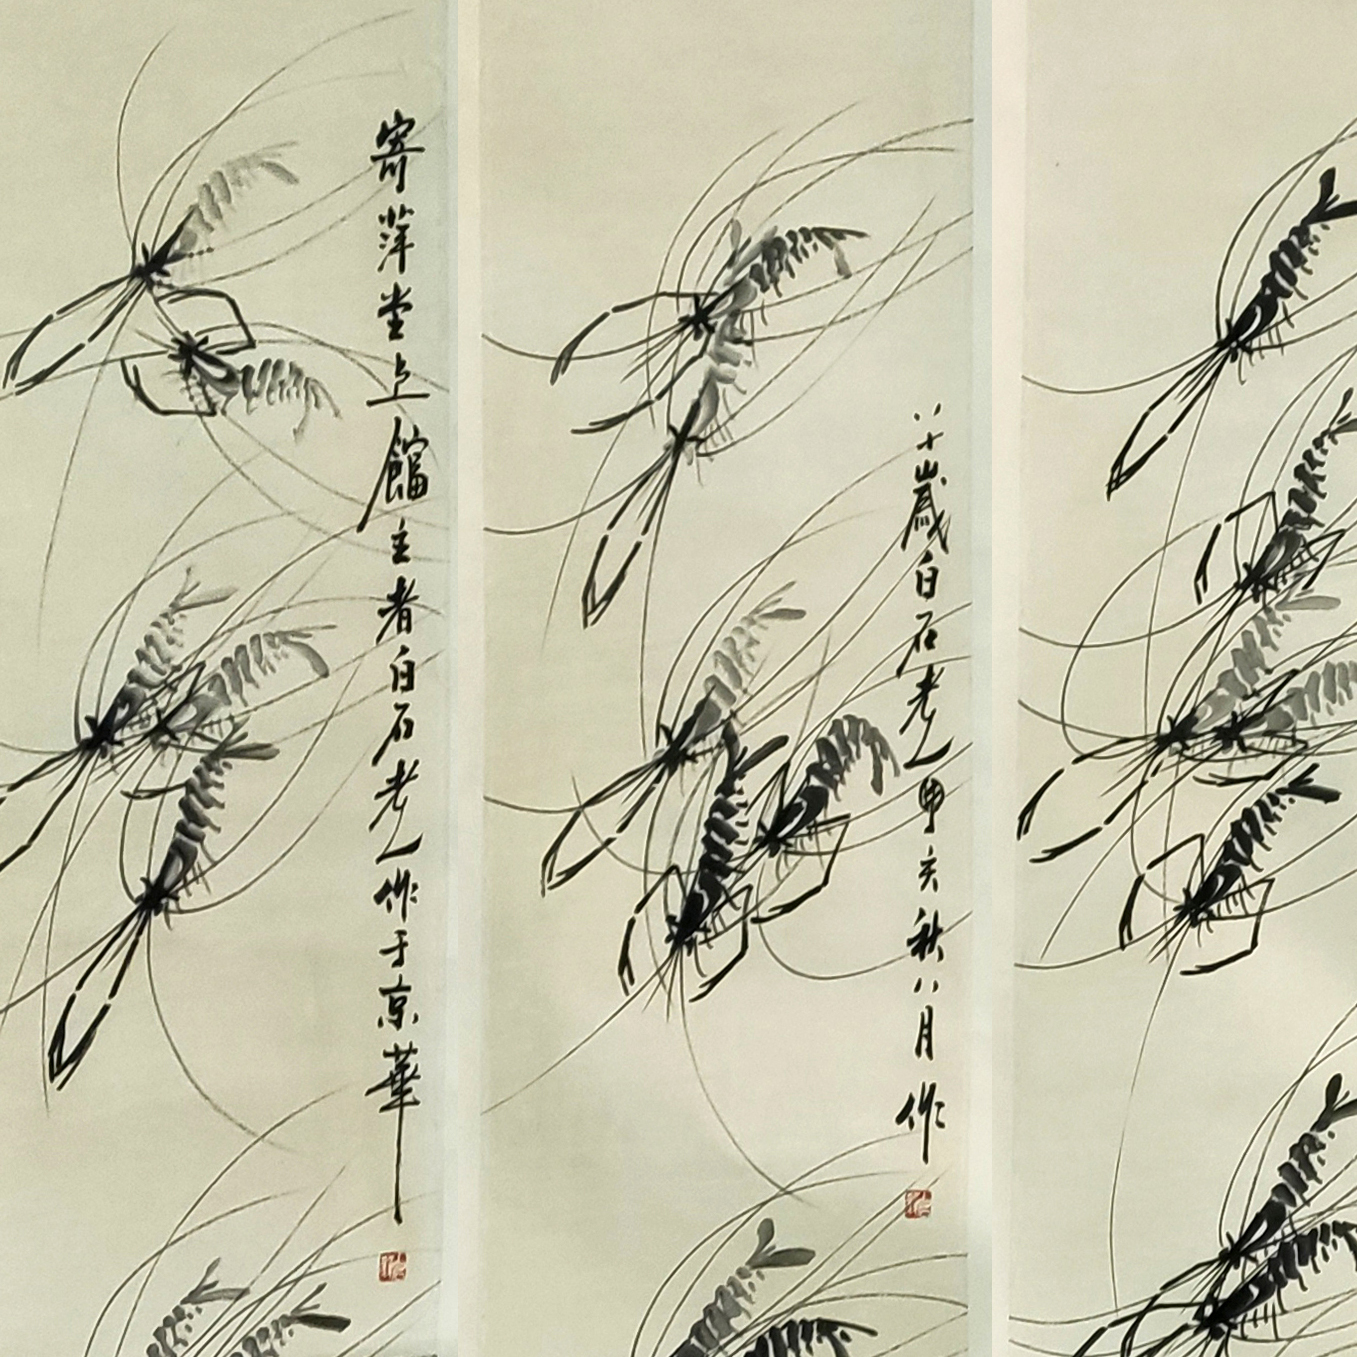 寄萍堂上舘主者白石老人作于京華
八十歲白石老人申亥秋八月作